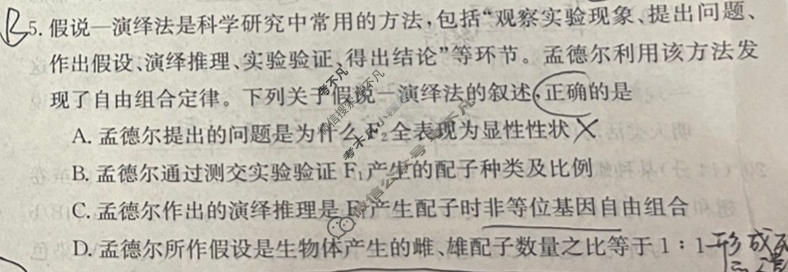 B 5. 假说—演绎法是科学研究中常用的方法,包括“观察实验现象、提出问题、
作出假设、演绎推理、实验验证、得出结论”等环节。孟德尔利用该方法发
现了自由组合定律。下列关于假说—演绎法的叙述,正确的是
A. 孟德尔提出的问题是为什么F₂全表现为显性性状 ×
B. 孟德尔通过测交实验验证F₁产生的配子种类及比例
C. 孟德尔作出的演绎推理是F₁产生配子时非等位基因自由组合
D. 孟德尔所作假设是生物体产生的雌、雄配子数量之比等于1∶1 形成
考不凡
微信搜索
微信公众号
考不凡